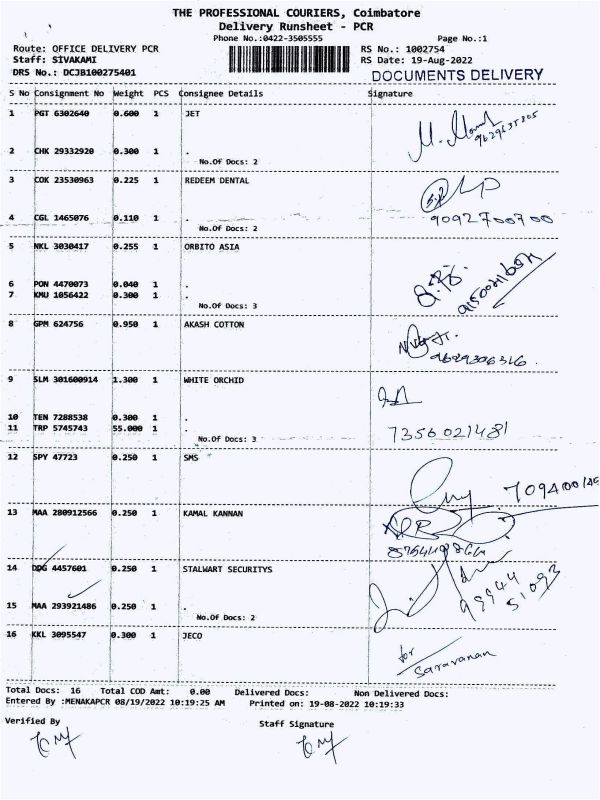 THE PROFESSIONAL COURIERS, Coimbatore
Delivery Runsheet - PCR
Phone No.:0422-3505555 Page No.:1
Route: OFFICE DELIVERY PCR RS No.: 1002754
Staff: SIVAKAMI RS Date: 19-Aug-2022
DRS No.: DCJB100275401 DOCUMENTS DELIVERY
S No Consignment No Weight PCS Consignee Details Signature
1 PGT 6302640 0.600 1 JET
2 CHK 29332920 0.300 1 .
No.Of Docs: 2
3 COK 23530963 0.225 1 REDEEM DENTAL
4 CGL 1465076 0.110 1 .
9092700700
No.Of Docs: 2
5 NKL 3030417 0.255 1 ORBITO ASIA
6 PON 4470073 0.040 1 .
7 KMU 1056422 0.300 1 .
No.Of Docs: 3
8 GPM 624756 0.950 1 AKASH COTTON
9629306316
9 SLM 301600914 1.300 1 WHITE ORCHID
10 TEN 7288538 0.300 1 .
11 TRP 5745743 55.000 1 .
7356021481
No.Of Docs: 3
12 SPY 47723 0.250 1 SMS
13 MAA 280912566 0.250 1 KAMAL KANNAN
14 DDG 4457601 0.250 1 STALWART SECURITYS
99944
51093
15 MAA 293921486 0.250 1 .
No.Of Docs: 2
16 KKL 3095547 0.300 1 JECO
for
Saravanan
Total Docs: 16 Total COD Amt: 0.00 Delivered Docs: Non Delivered Docs:
Entered By :MENAKAPCR 08/19/2022 10:19:25 AM Printed on: 19-08-2022 10:19:33
Verified By Staff Signature